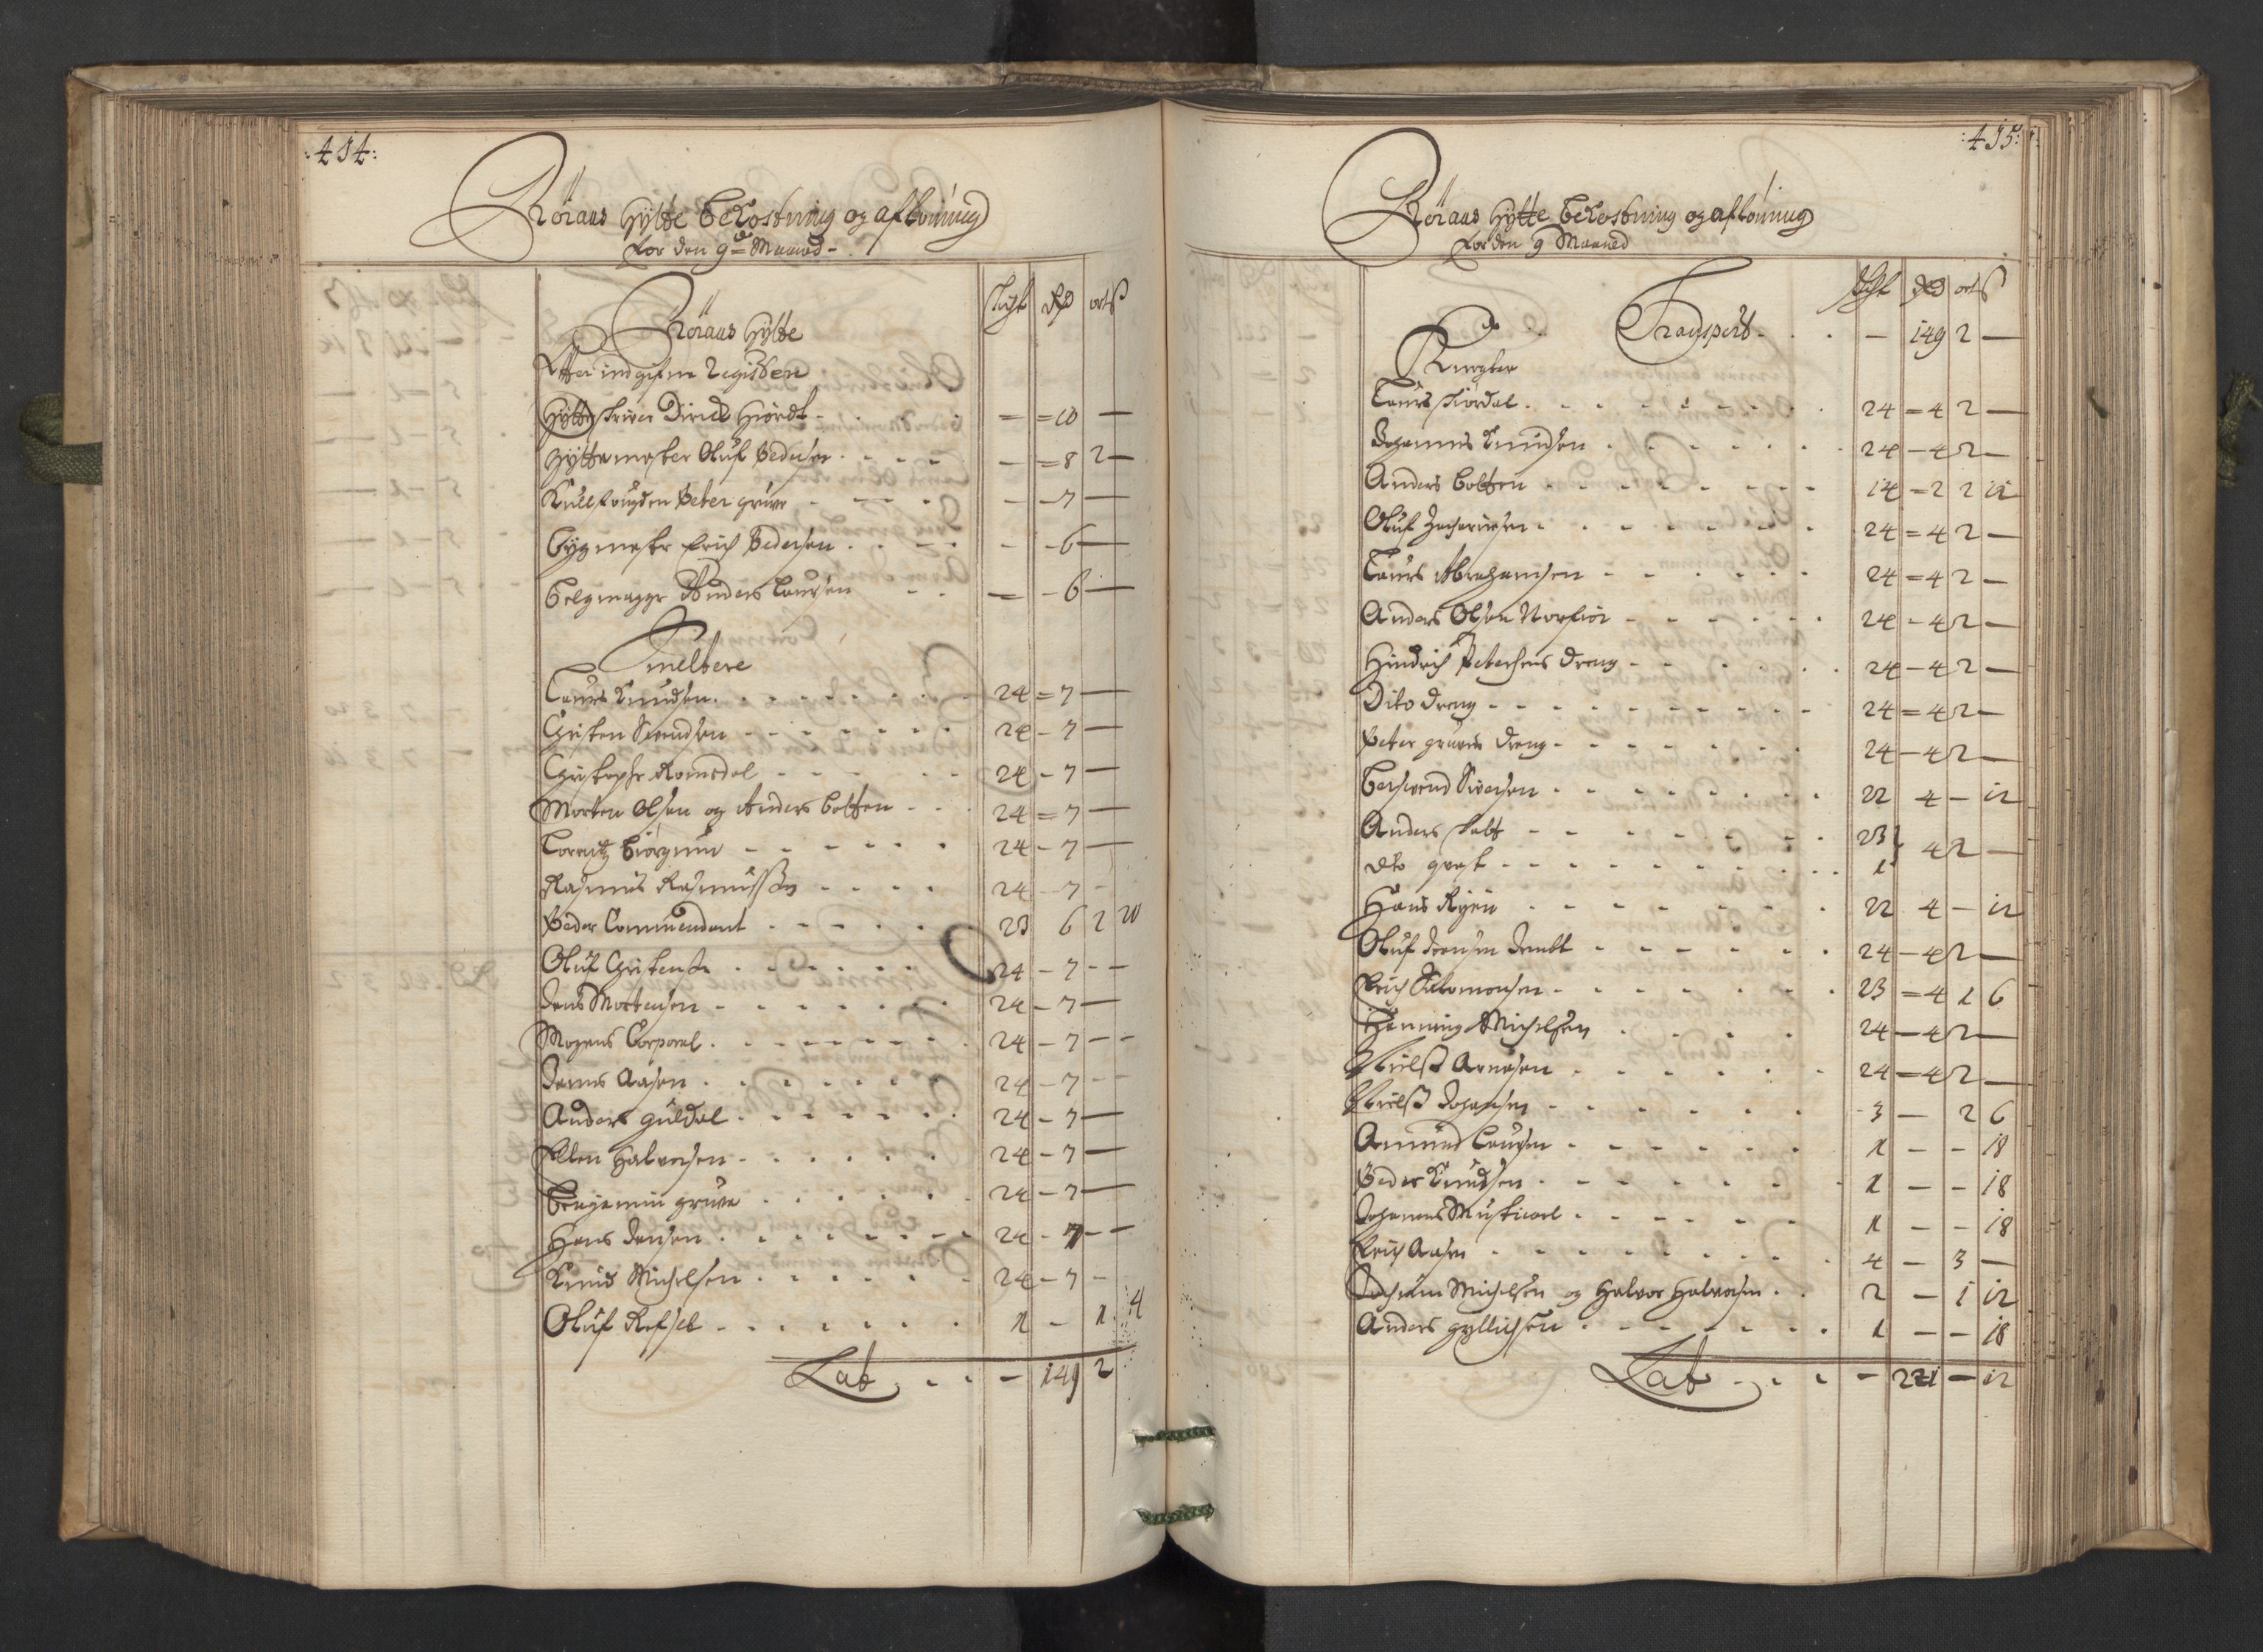 :414:
Röraas Hÿtte Bekostning og aflöning
for den 9de Maaned
schift Rd ort s
Röraas Hÿtte
Efter indgifne Register
Hÿtteskriver Dirick Hiördt - - = 10 —
Hÿttemester Oluf Pedersen - - = 8 2 —
Kullfougden Peter gruve - - - 7 —
Bÿgmester Erich Pedersen - - - 6 —
Belgmager Anders Laursen - - - 6 —
Smeltere
Laurs Knudsen - - 24 = 7 —
Christen Svendsen - - 24 - 7 —
Christopher Romsdal - - 24 - 7 —
Morten Olsen og Anders Bolften - - 24 = 7 —
Lorentz Biörgum - - 24 - 7 —
Rasmus Rasmussen - - 24 - 7 -
Peder Commendant - - 23 6 2 20
Oluf Christensen - - 24 - 7 - -
Jens Mortensen - - 24 - 7 —
Mogens Corporal - - 24 - 7 - -
Jens Aasen - - 24 - 7 - -
Anders Guldal - - 24 - 7 —
Ellen Halvorsen - - 24 - 7 —
Benjamin gruve - - 24 - 7 —
Hans Jensen - - 24 - 7 - -
Knud Michelsen - - 24 - 7 -
Oluf Refsel - - 1 - 1 4
Lat - - - 149 2
:415:
Röraas Hÿtte Bekostning og aflöning
for den 9 Maaned
schift Rd ort s
Transport - - - 149 2 —
Knegter
Laurs Stiördal - - 24 = 4 2 —
Johannes Knudsen - - 24 - 4 2 —
Anders Bolften - - 14 = 2 2 12
Oluf Zachariesen - - 24 = 4 2 —
Laurs Abrahamsen - - 24 = 4 2 —
Anders Olsen Norfior - - 24 - 4 2 —
Hindrich Petersens Dreng - - 24 - 4 2 —
Dito Dreng - - 24 = 4 2 —
Peter gruves Dreng - - 24 - 4 2 —
Bersvend Siversen - - 22 4 - 12
Anders - - 23
dto - - 1 4 2 —
Hans Ryen - - 22 4 - 12
Oluf Jensen - - 24 - 4 2 —
Erich Salomonsen - - 23 = 4 1 6
Henning Michelsen - - 24 - 4 2 —
Nielss Arnesen - - 24 - 4 2 —
Nielss Johansen - - 3 — 2 6
Amund Laursen - - 1 - - 18
Peder Knudsen - - 1 - - 18
Johannes Musticael - - 1 - - 18
Erich Aasen - - 4 - 3 —
Jochum Michelsen og Halvor Halvorsen - - 2 - 1 12
Anders Gyllichsen - - 1 - - 18
Lat - - - 221 — 12